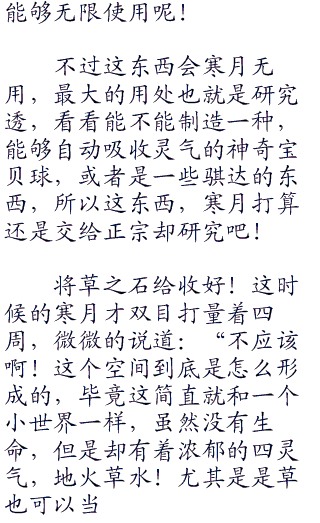 能够无限使用呢！
不过这东西会寒月无
用，最大的用处也就是研究
透，看看能不能制造一种，
能够自动吸收灵气的神奇宝
贝球，或者是一些骐达的东
西，所以这东西，寒月打算
还是交给正宗却研究吧！
将草之石给收好！这时
候的寒月才双目打量着四
周，微微的说道：“不应该
啊！这个空间到底是怎么形
成的，毕竟这简直就和一个
小世界一样，虽然没有生
命，但是却有着浓郁的四灵
气，地火草水！尤其是是草
也可以当